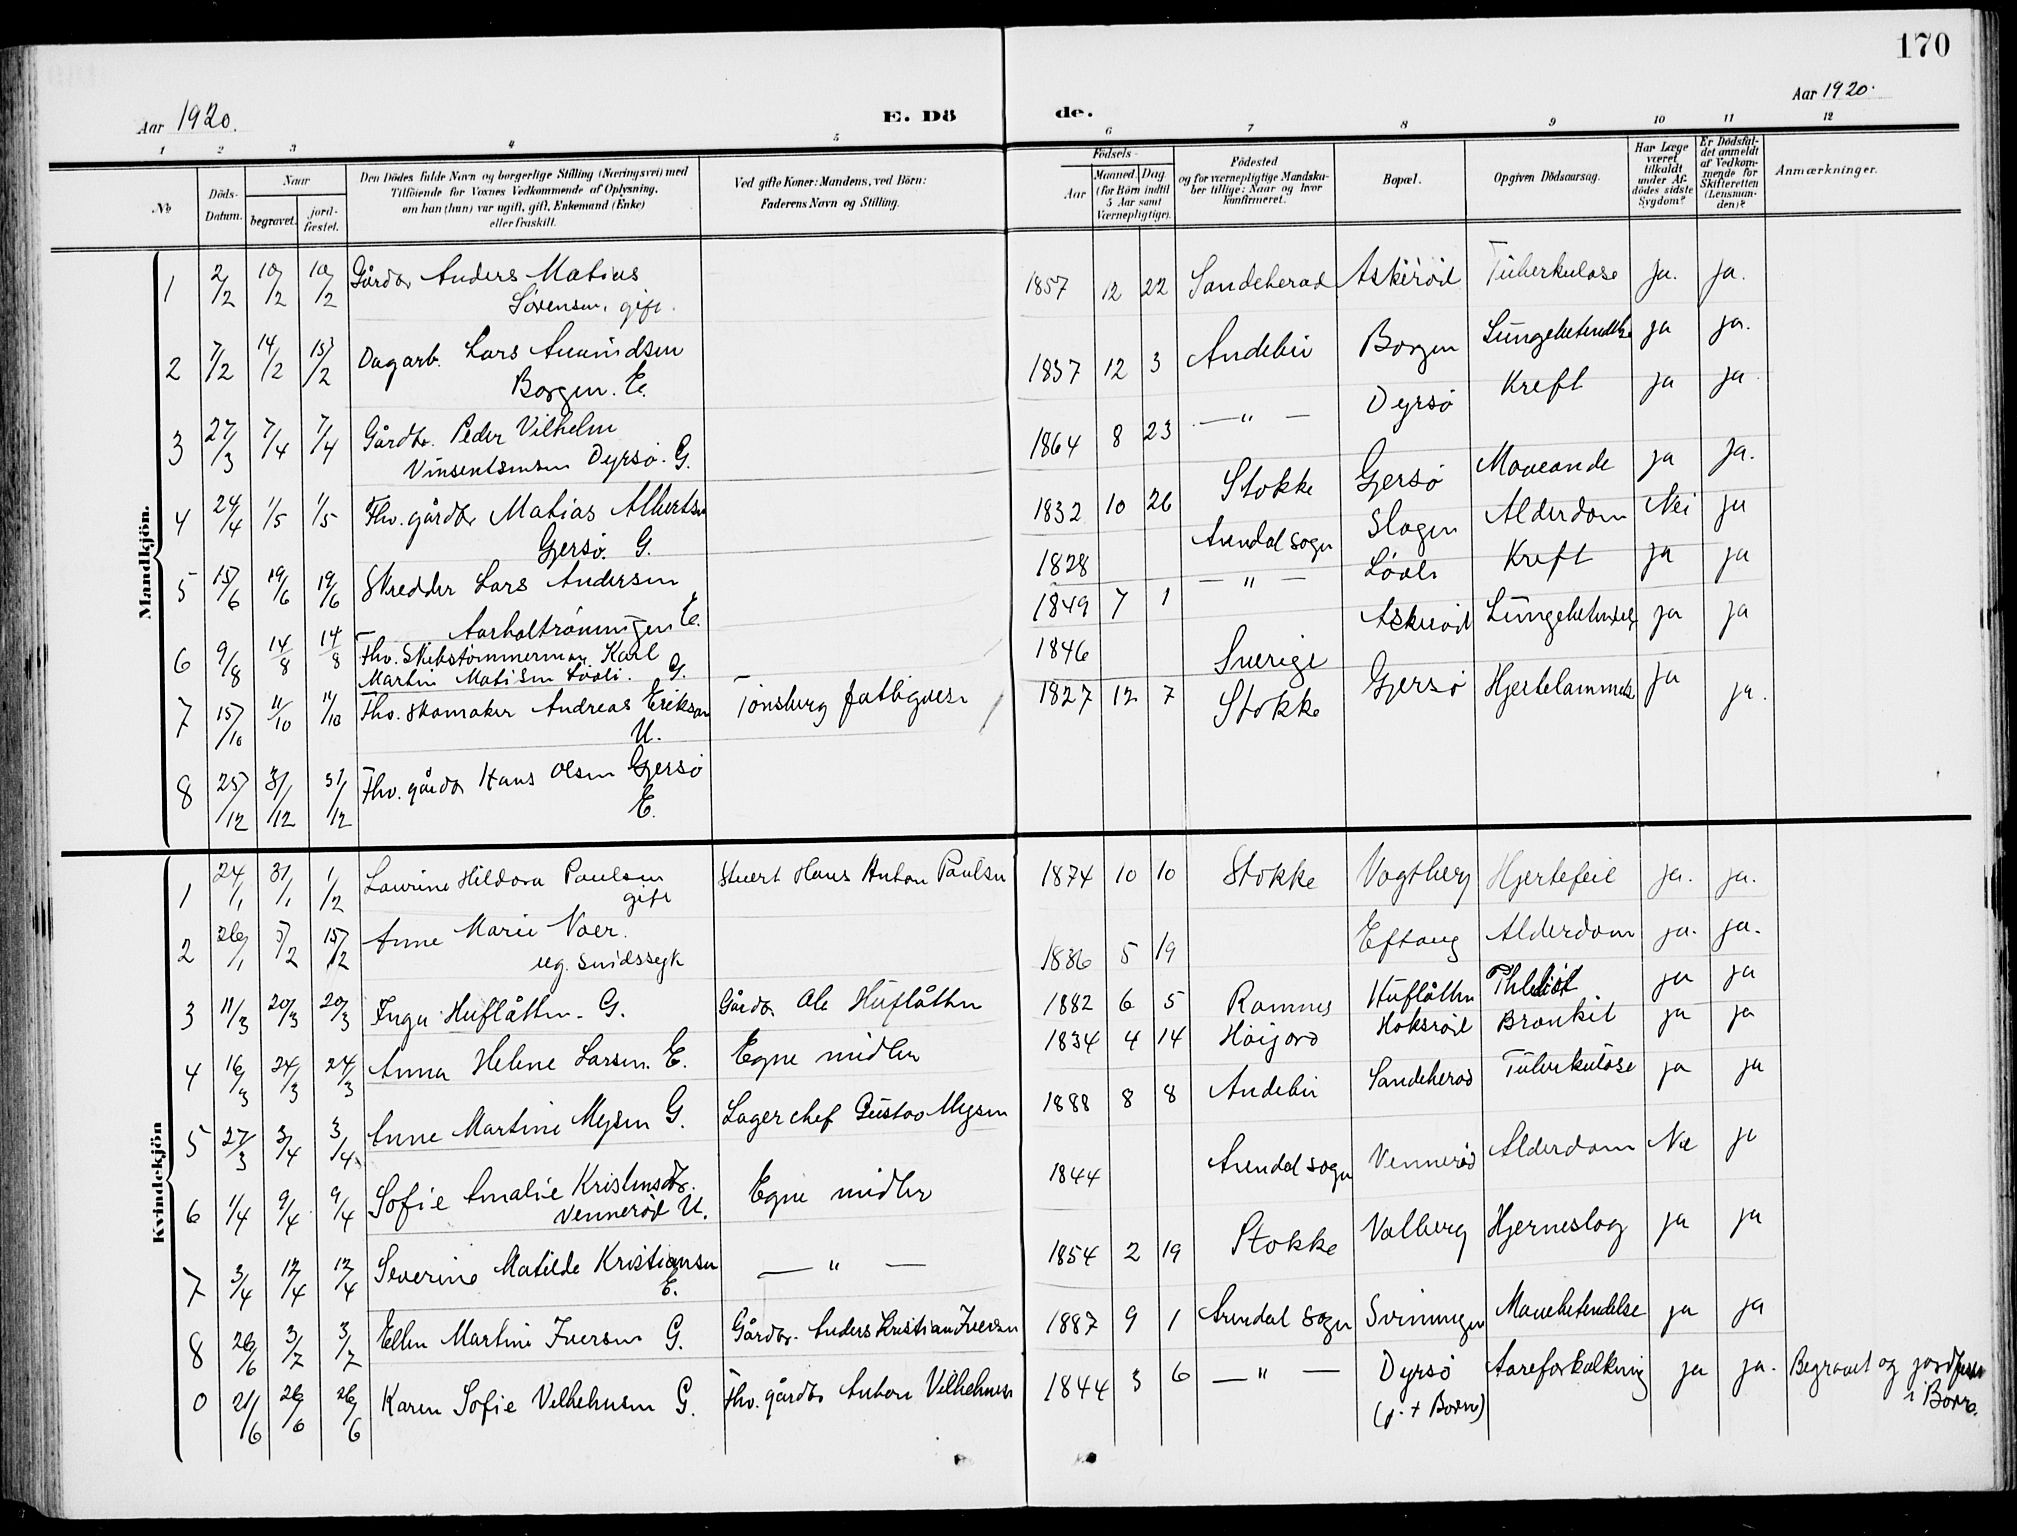 170
Aar 1920.
E. Dö
de.
Aar 1920.
1 2 3 4 5 6 7 8 9 10 11 12
No
Döds-
Datum.
Naar
begravet.
jord-
fæstet.
Den Dödes fulde Navn og borgerlige Stilling (Næringsvei) med
Tilföiende for Voxnes Vedkommende af Oplysning,
om han (hun) var ugift, gift, Enkemand (Enke)
eller fraskilt.
Ved gifte Koner: Mandens, ved Börn:
Faderens Navn og Stilling.
Födsels-
Aar
Maaned. Dag
(for Börn indtil
5 Aar samt
Værnepligtige).
Födested
og for værnepligtige Mandska-
ber tillige: Naar og hvor
konfirmeret.
Bopæl.
Opgiven Dödsaarsag.
Har Læge
været
tilkaldt
under Af-
dödes sidste
Sygdom?
Er Dödsfal-
det anmeldt
af Vedkom-
mende for
Skifteretten
(Lensman-
den)?
Anmærkninger.
Mandkjön.
1 2/2 10/2 10/2 Gårdbr Anders Matias
Sörensen, gift. 1857 12 22 Sandeherad Askeröd Tuberkulose ja. ja.
2 7/2 14/2 15/2 Dagarb. Lars Amundsen
Borgen. E. 1837 12 3 Andebu Borgen Lungebetendelse ja ja.
3 27/3 7/4 7/4 Gårdbr. Peder Vilhelm
Vinsentsensen Dyrsö. G. 1864 8 23 — " — Dyrsö Kreft ja ja.
4 24/4 1/5 1/5 Fhv. gårdbr Matias Albertsen
Gjersö. G. 1832 10 26 Stokke Gjersö Maveonde ja ja.
5 15/6 19/6 19/6 Skredder Lars Andersen
Aarholtröningen E. 1828 Arendal sogn Slagen Alderdom Nei ja
6 9/8 14/8 14/8 Fhv. Skibstömmerman Karl
Martin Matisen Lövli. G. 1849 7 1 — " — Lövli Kreft ja ja
7 15/10 11/10 11/10 Fhv. skomaker Andreas Erikson
U. Tönsberg fattigvesn 1846 Sverige Askeröd Lungebetendelse ja ja
8 25/12 31/12 31/12 Fhv. gårdbr Hans Olsen Gjersö
E. 1827 12 7 Stokke Gjersö Hjertelammelse ja ja.
Kvindekjön
1 24/1 31/1 1/2 Laurine Hildora Paulsen
gift Stuert Hans Anton Paulsen 1874 10 10 Stokke Vogtberg Hjertefeil ja. ja.
2 26/1 5/2 15/2 Anne Marie Naer.
ug. sindssyk 1836 5 19 Eftang Alderdom ja. ja.
3 11/3 20/3 20/3 Inga Huflåtten. G. Gårdbr. Ole Huflåtten 1882 6 5 Ramnes Huflåtten ja ja
4 16/3 24/3 24/3 Anna Helene Larsen. E. Egne midler 1834 4 14 Höijord Hoksröd Bronkit ja ja
5 27/3 3/4 3/4 Anne Martine Mysen G. Lagerchef Gustav Mysen 1888 8 8 Andebu Sandeherad Tuberkulose ja ja
6 1/4 9/4 9/4 Sofie Amalie Kristensdtr.
Venneröd U. Egne midler 1844 Arendal sogn Venneröd Alderdom Nei ja
7 3/4 12/4 12/4 Severine Matilde Kristiansen
E. — " — 1854 2 19 Stokke Valberg Hjerneslag ja ja
8 26/6 3/7 3/7 Ellen Martine Iversen G. Gårdbr. Anders Kristian Iversen 1887 9 1 Arendal sogn Svinungen Mavebetendelse ja ja
0 21/6 26/6 26/6 Karen Sofie Vilhelmsen G. Fhv. gårdbr Anton Vilhelmsen 1844 3 6 — " — Dyrsö
(p. t Borre) Aareforkalkning ja ja. Begravet og jordfestet
i Borre.